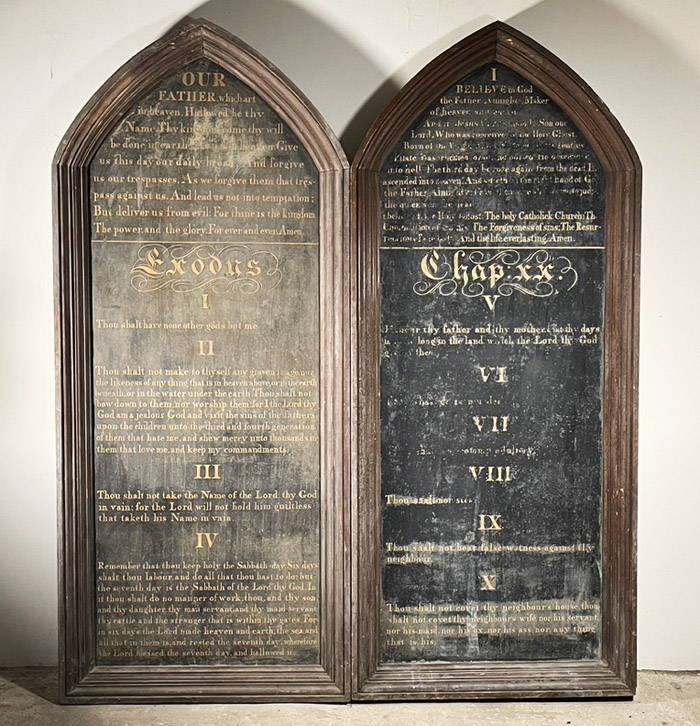 OUR
FATHER, which art
in heaven, Hallowed be thy
Name. Thy kingdom come thy will
be done in earth, As it is in heaven. Give
us this day our daily bread. And forgive
us our trespasses, As we forgive them that tres-
pass against us. And lead us not into temptation;
But deliver us from evil. For thine is the kingdom
The power, and the glory. For ever and ever. Amen.
Exodus
I
Thou shalt have none other gods but me
II
Thou shalt not make to thyself any graven image, nor
the likeness of any thing that is in heaven above, or in the earth
beneath, or in the water under the earth. Thou shalt not
bow down to them, nor worship them: for I the Lord thy
God am a jealous God and visit the sins of the fathers
upon the children unto the third and fourth generation
of them that hate me, and shew mercy unto thousands in
them that love me, and keep my commandments.
III
Thou shalt not take the Name of the Lord thy God
in vain: for the Lord will not hold him guiltless
that taketh his Name in vain.
IV
Remember that thou keep holy the Sabbath-day Six days
shalt thou labour, and do all that thou hast to do; but
the seventh day is the Sabbath of the Lord thy God. In
it thou shalt do no manner of work, thou, and thy son
and thy daughter, thy man servant, and thy maid servant
thy cattle and the stranger that is within thy gates. For
in six days the Lord made heaven and earth, the sea, and
all that in them is, and rested the seventh day; wherefore
the Lord blessed the seventh day, and hallowed it.
I
BELIEVE in God
the Father Maker
of heaven
And in Jesus Son our
Lord, Who was the Holy Ghost,
Born of the
Pilate Was
into hell The third day he rose again from the dead He
ascended into heaven, And right hand of G
the Father
the
The holy Catholick Church; Th
The Forgiveness of sins; The Resur-
And the life everlasting. Amen.
Chap: xx.
V
thy father and thy mother days
long in the land which the Lord thy God
thee
VI
VII
adultery
VIII
Thou shalt not steal
IX
Thou shalt not bear false witness against thy
neighbour.
X
Thou shalt not covet thy neighbour's house, thou
shalt not covet thy neighbour's wife, nor his servant,
nor his maid, nor his ox, nor his ass, nor any thing
that is his.